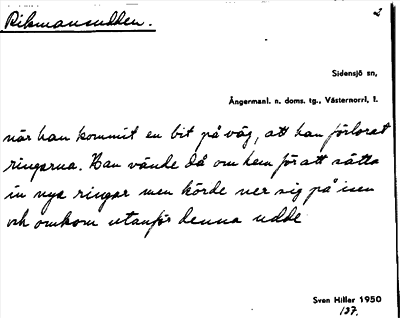 Rikmansudden.
2
Sidensjö sn,
Ångermanl. n. doms. tg., Västernorrl, l.
när han kommit en bit på väg, att han förlorat
ringarna. Han vände då om hem för att sätta
in nya ringar men körde ner sig på isen
och omkom utanför denna udde
Sven Hiller 1950
137.